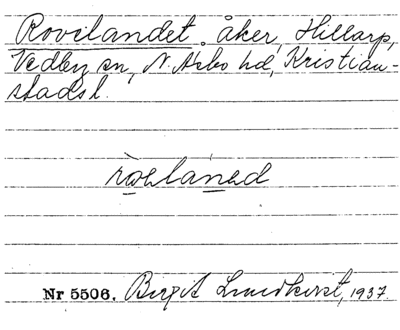 Rovelandet. åker, Hillarp,
Vedby sn, N. Åsbo hd, Kristian-
stads l.
Nr 5506. Birgit Lundkvist, 1937.